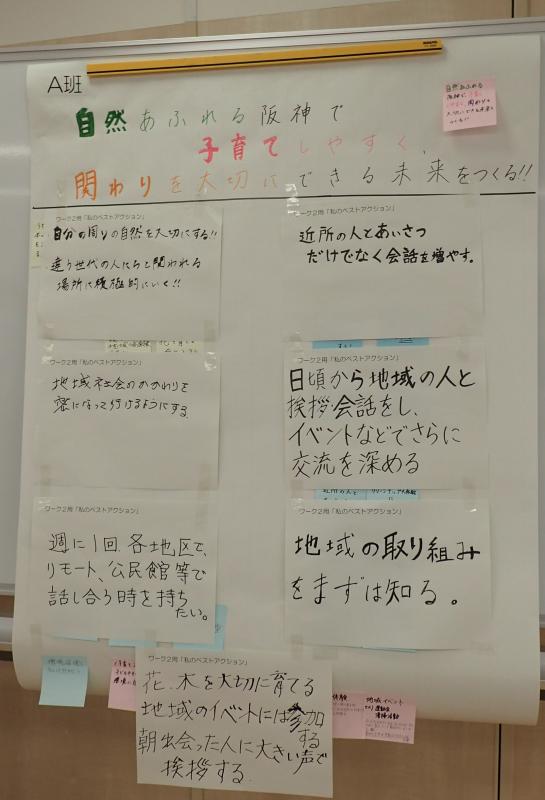 A班
自然あふれる阪神で
子育てしやすく、
関わりを大切にできる未来をつくる!!
自然あふれる
阪神で、子育て
しやすく、関わりを
大切にできる未来を
つくる!!
ワーク2用「私のベストアクション」
自分の周りの自然を大切にする!!
違う世代の人たちと関われる
場所に積極的にいく!!
近所の人とあいさつ
だけでなく会話を増やす。
ワーク2用「私のベストアクション」
地域社会のかかわりを
密になって行けるようにする
ワーク2用「私のベストアクション」
日頃から地域の人と
挨拶・会話をし、
イベントなどでさらに
交流を深める
近所の人と
ワーク2用「私のベストアクション」
週に1回、各地区で、
リモート、公民館等で
話し合う時を持ち
たい。
ワーク2用「私のベストアクション」
地域の取り組み
をまずは知る。
ワーク2用「私のベストアクション」
花、木を大切に育てる
地域のイベントには参加
する
朝出会った人に大きい声で
挨拶する。
体験
地域イベント
清掃活動